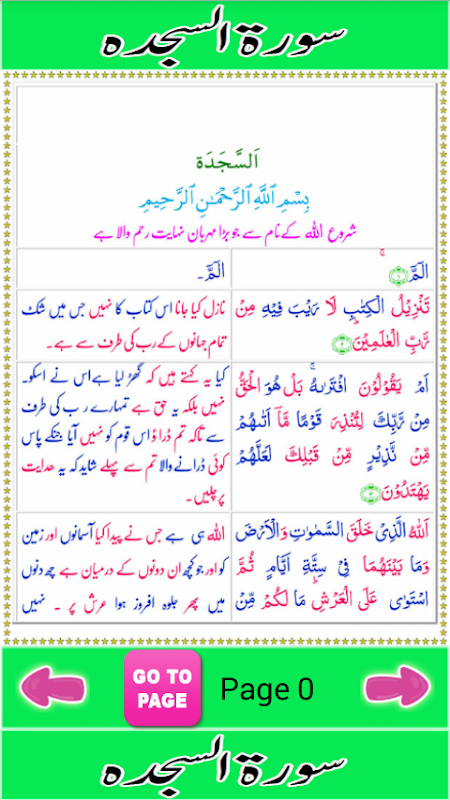 سورة السجده
اَلسَّجَدَة
بِسْمِ ٱللَّهِ ٱلرَّحْمَـٰنِ ٱلرَّحِيمِ
شروع اللہ کے نام سے جو بڑا مہربان نہایت رحم والا ہے
الٓمّٓ ۚ ﴿۱﴾
الٓمّٓ۔
تَنْزِيْلُ الْكِتٰبِ لَا رَيْبَ فِيْهِ مِنْ
رَّبِّ الْعٰلَمِيْنَ ﴿۲﴾
نازل کیا جانا اس کتاب کا نہیں جس میں شک
تمام جہانوں کے رب کی طرف سے ہے۔
اَمْ يَقُوْلُوْنَ افْتَرٰىهُ ۚ بَلْ هُوَ الْحَقُّ
مِنْ رَّبِّكَ لِتُنْذِرَ قَوْمًا مَّاۤ اَتٰىهُمْ
مِّنْ نَّذِيْرٍ مِّنْ قَبْلِكَ لَعَلَّهُمْ
يَهْتَدُوْنَ ﴿۳﴾
کیا یہ کہتے ہیں کہ گھڑ لیا ہے اس نے اسکو۔
نہیں بلکہ یہ حق ہے تمہارے رب کی طرف
سے تاکہ تم ڈراؤ اس قوم کو نہیں آیا جنکے پاس
کوئی ڈرانے والا تم سے پہلے شاید کہ یہ ھدایت
پر چلیں۔
اَللّٰهُ الَّذِيْ خَلَقَ السَّمٰوٰتِ وَالْاَرْضَ
وَمَا بَيْنَهُمَا فِيْ سِتَّةِ اَيَّامٍ ثُمَّ
اسْتَوٰى عَلَى الْعَرْشِ ؕ مَا لَكُمْ مِّنْ
اللہ ہی ہے جس نے پیدا کیا آسمانوں اور زمین
کو اور جو کچھ ان دونوں کے درمیان ہے چھ دنوں
میں پھر جلوہ افروز ہوا عرش پر ۔ نہیں
GO TO
PAGE
Page 0
سورة السجده